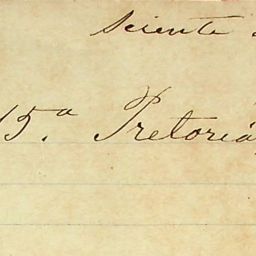 Sciente
15.a Pretoria